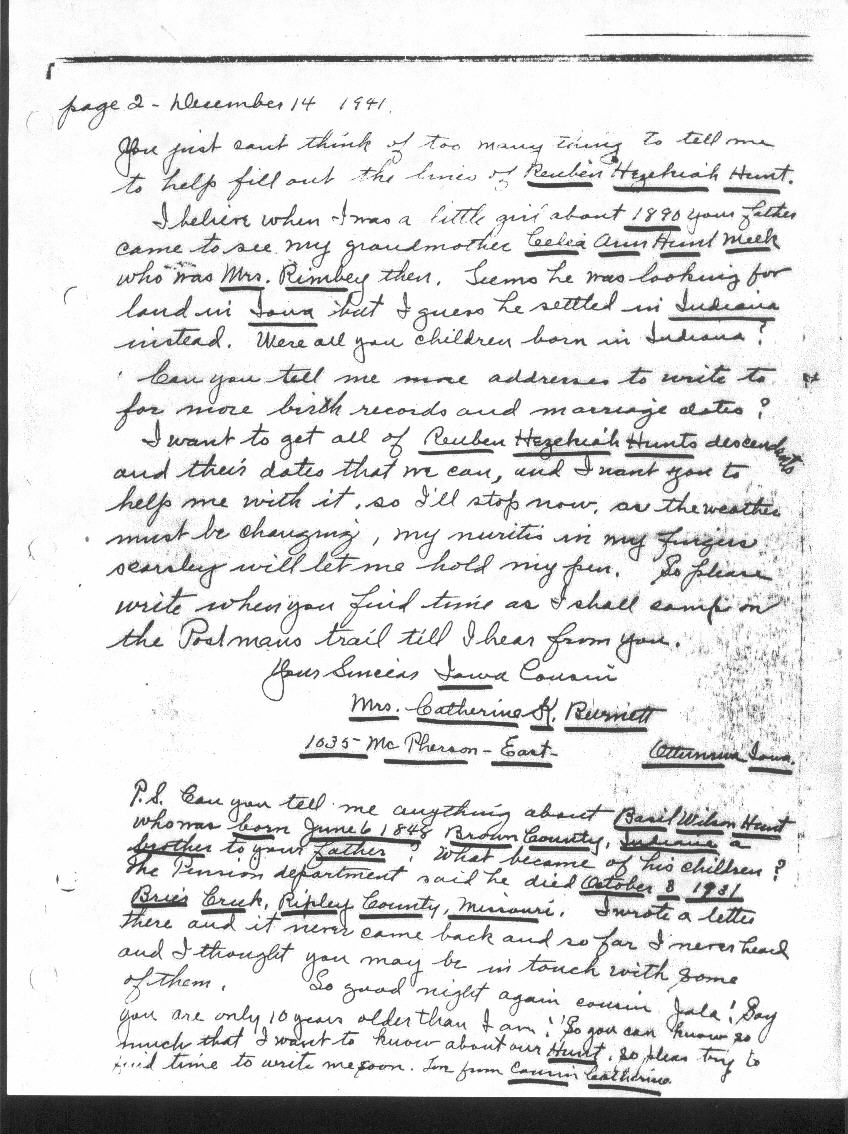 page 2 - December 14 1941.
You just cant think of too many thing to tell me
to help fill out the lines of Reuben Hezekiah Hunt.
I believe when I was a little girl about 1890 your father
came to see my grandmother Celia Ann Hunt Meek
who was Mrs. Rimbey then. Seems he was looking for
land in Iowa but I guess he settled in Indiana
instead. Were all you children born in Indiana?
Can you tell me more addresses to write to
for more birth records and marriage dates?
I want to get all of Reuben Hezekiah Hunts descendants
and their dates that we can, and I want you to
help me with it. so I'll stop now, as the weather
must be changing, my nuritis in my fingers
scarsley will let me hold my pen. So please
write when you find time as I shall camp on
the Postmans trail till I hear from you.
Your Sinceras Iowa Cousin
Mrs. Catherine K. Burnett
1035 - McPherson - East - Ottumwa Iowa.
P.S. Can you tell me anything about Basil Wilson Hunt
who was born June 6 1848 Brown County, Indiana a
brother to your father? What became of his children?
The Pension department said he died October 8 1931
Bries Crick, Ripley County, Missouri. I wrote a letter
there and it never came back and so far I never heard
and I thought you may be in touch with some
of them. So good night again cousin Jala! Say
you are only 10 years older than I am! So you can know so
much that I want to know about our Hunt. so pleas try to
find time to write me soon. Im from Cousin Catherine.